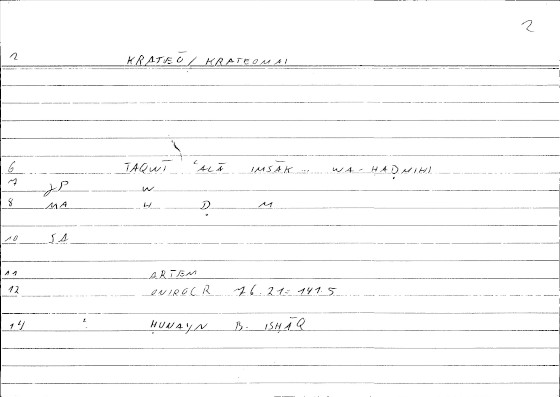 2
2 KRATEŌ / KRATEOMAI
6 TAQWĪ ʿALĀ IMSĀK … WA-ḤAḌNIHI
7 JP W
8 MA W Ḍ M
10 SA
11 ARTEM
12 ONIROCR 76.21 = 141.5
14 ḤUNAYN B. ISḤĀQ